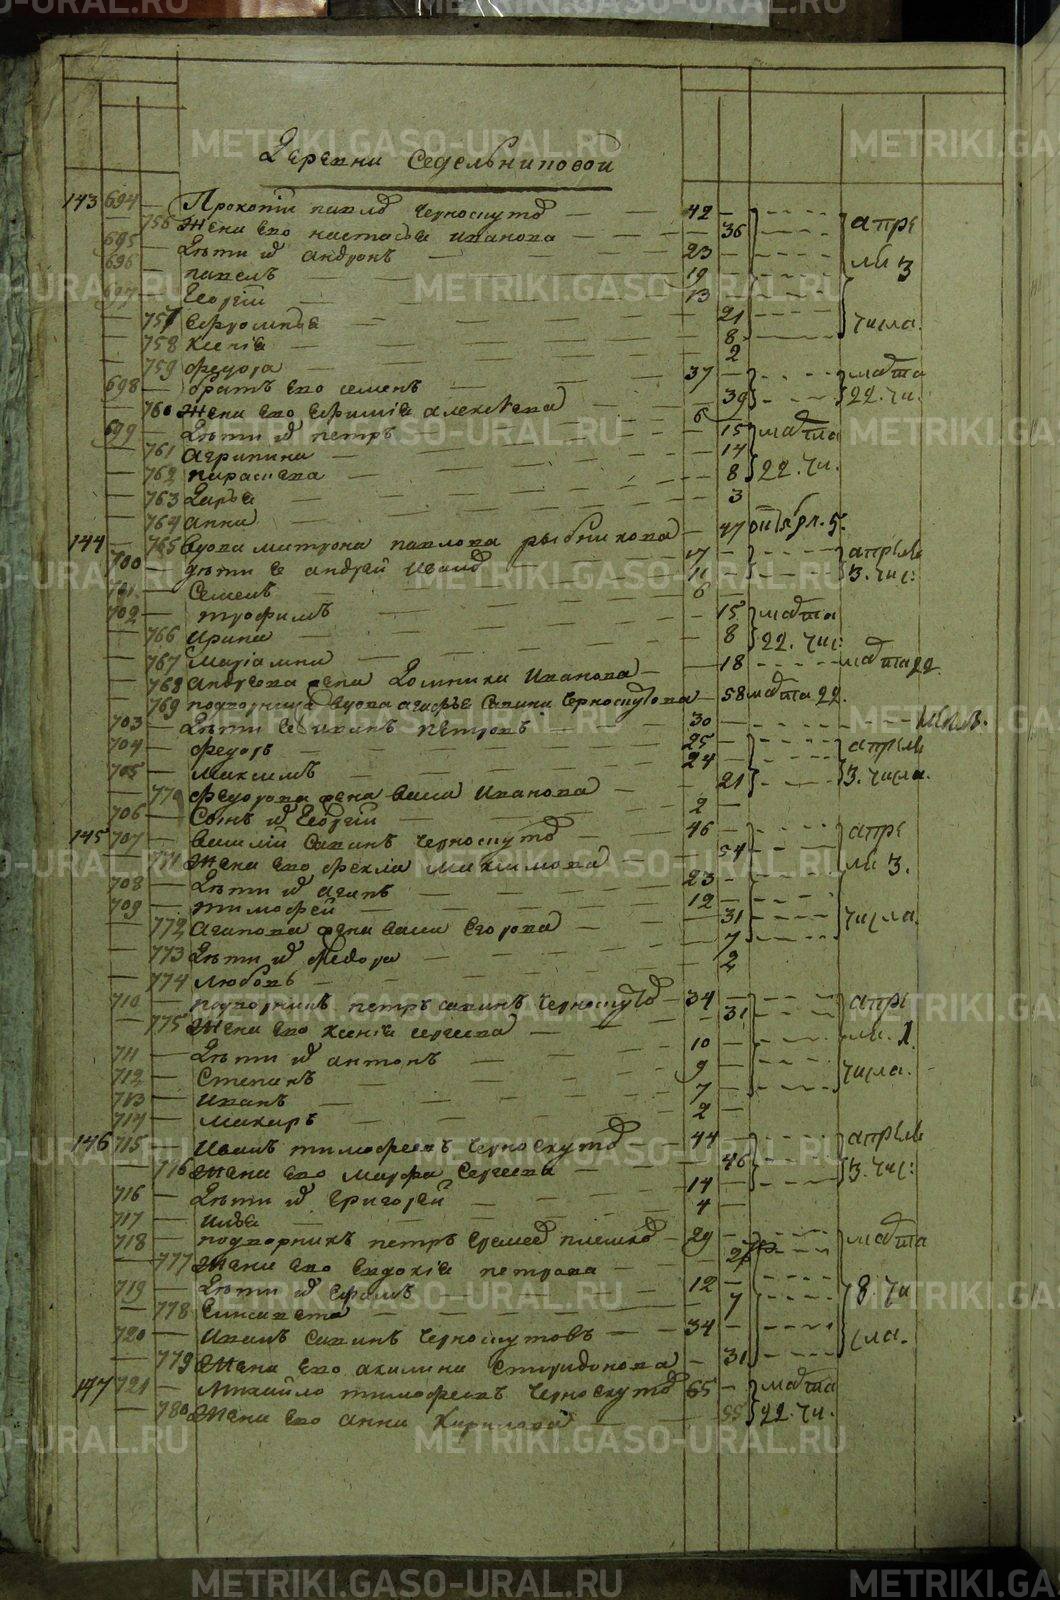 METRIKI.GASO-URAL.RU
Деревни Седельниковой
143 694 — Прокопiй павлов Черноскутов — 42 — апре
756 Жена его настасья иванова — 36
695 — Дѣти их андронъ — 23 — ли 3
696 — павелъ — 19
697 — Георгiй — 13
757 — 21 числа.
758 ксенiя — 8
759 федора — 2
698 — братъ его семенъ — 37 — марта
760 Жена его Ефимiя алексѣева — 39 22. чи.
699 — Дѣти их петръ — 6
761 Агрипина — 15 марта
762 парасковья — 14
763 Дарья — 8 22. чи.
764 анна — 3
144 — 765 вдова матрона павлова рыбникова — 47 5.
700 — дѣти ея андрей иванов — 17 — апреля
701 — Семенъ — 11 3. чис:
702 — трофимъ — 6
766 Ирина — 15 марта
767 Марiамна — 8 22. чис:
768 Андреева жена Домника Иванова — 18 марта 22
769 вдова агафья Савина Черноскутова — 58 марта 22.
703 — Дѣти ея иванъ петровъ — 30
704 — федоръ — 25 апреля
705 — максимъ — 24 3. числа.
770 федорова жена васса Иванова — 21
706 — Сынъ их Георгiй — 2
145 707 — василiй савинъ Черноскутов — 46 апре
771 Жена его фекла максимова — 54 ли 3.
708 — Дѣти их агапъ — 23
709 — тимофей — 12 числа
772 Агапова жена васса Егорова — 31
773 Дѣти их федора — 7
774 Любовь — 2
710 — петръ савинъ Черноскутов — 34 апре
775 Жена его ксенiя сергеева — 31 ли. 1.
711 — Дѣти их антонъ — 10
712 — Степанъ — 9 числа.
713 — Иванъ — 7
714 — макаръ — 2
146 715 Иванъ тимофеевъ Черноскутов — 44 апреля
776 Жена его марфа Сергеева — 46 3. чис:
716 — Дѣти их григорей — 14
717 — илья — 4
718 — подворникъ петръ — 29 марта
777 Жена его Евдокiя петрова — 27
719 — Дѣти их Ефимъ — 12 8. чи
778 Елисавета — 7
720 — Иванъ Савинъ Черноскутовъ — 34 сла.
779 Жена его акилина Спиридонова — 31
147 721 — Михайло тимофеевъ Черноскутов 65 — марта
780 Жена его анна Кирилова — 55 22. чи.
METRIKI.GASO-URAL.RU